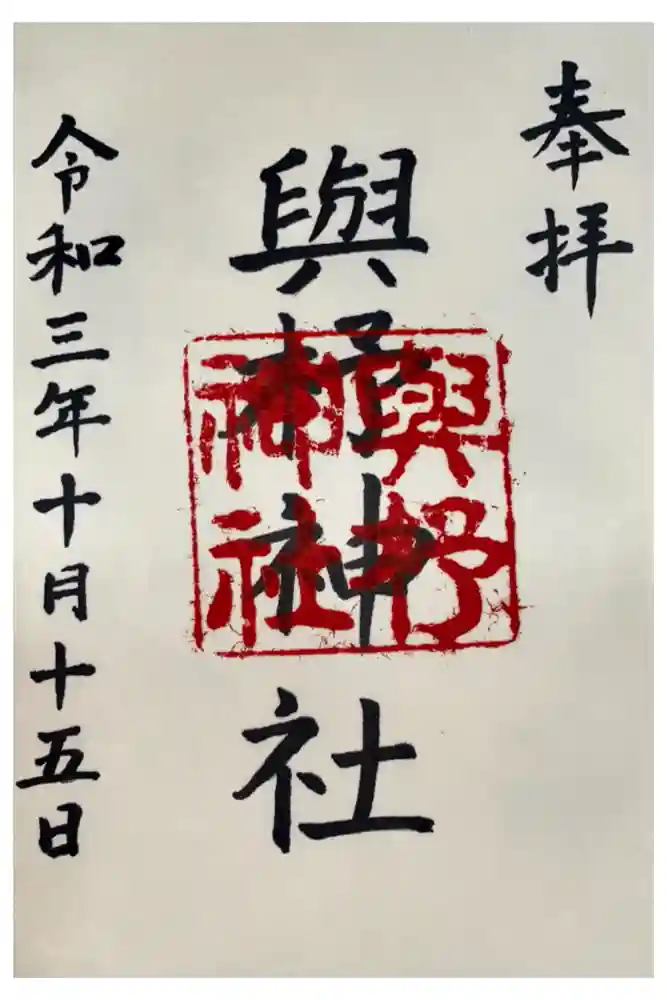 奉拝
與杼神社
與杼
神社
令和三年十月十五日